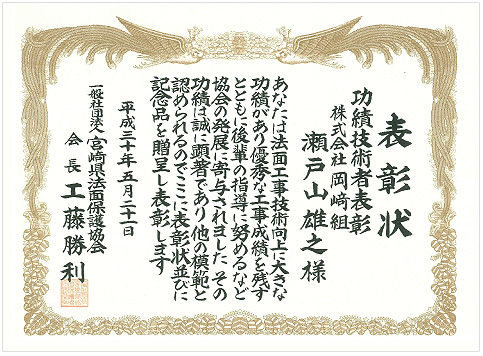 表彰状
功績技術者表彰
株式会社岡﨑組
瀬戸山雄之様
あなたは法面工事技術向上に大きな
功績があり優秀な工事成績を残す
とともに後輩の指導に努めるなど
協会の発展に寄与されました その
功績は誠に顕著であり他の模範と
認められるのでここに表彰状並びに
記念品を贈呈し表彰します
平成三十年五月二十一日
一般社団法人宮崎県法面保護協会
会長 工藤勝利